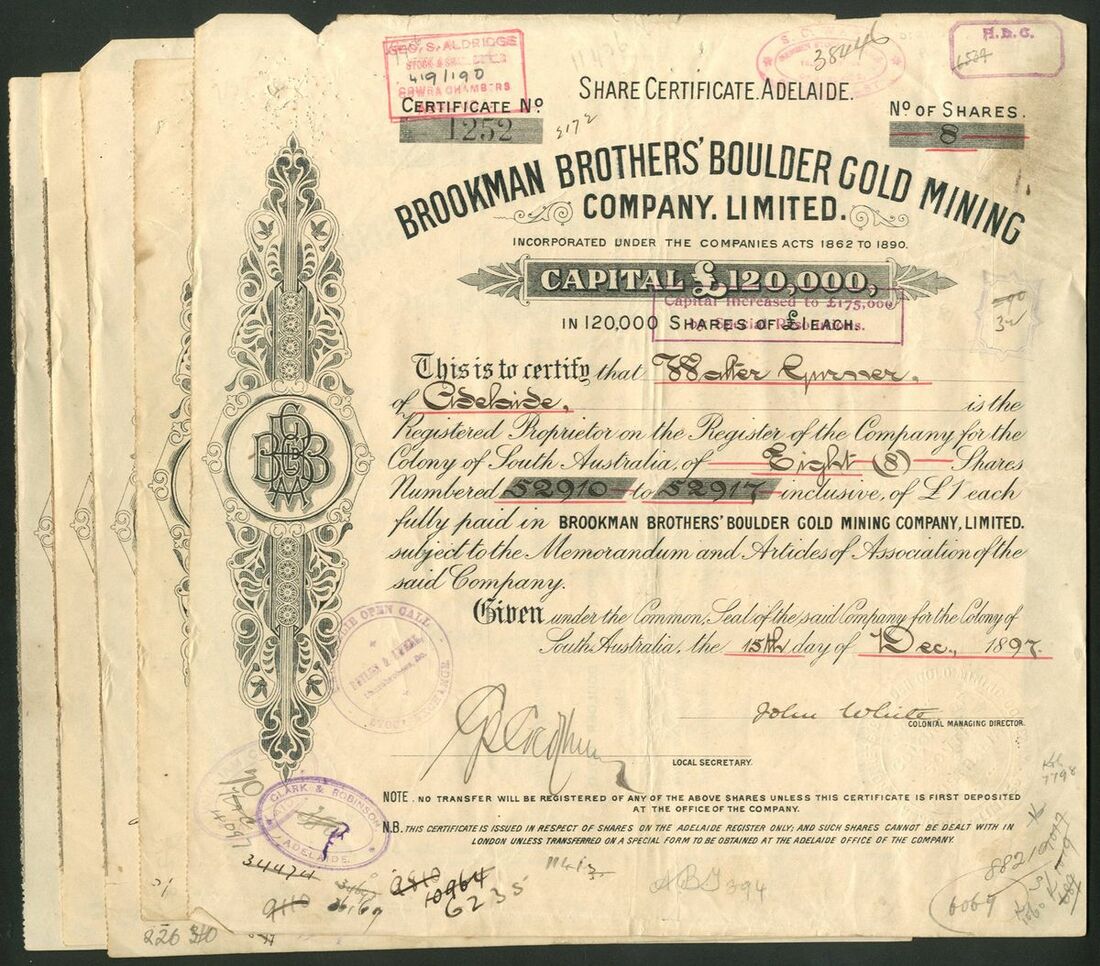 GEO. S. ALDRIDGE
419/190
COWRA CHAMBERS
38446
H.B.C.
6539
SHARE CERTIFICATE. ADELAIDE.
CERTIFICATE No
1252
5172
No OF SHARES.
8
BROOKMAN BROTHERS' BOULDER GOLD MINING
COMPANY. LIMITED.
INCORPORATED UNDER THE COMPANIES ACTS 1862 TO 1890.
CAPITAL £120,000,
Capital Increased to £175,000
by Special Resolutions.
IN 120,000 SHARES OF £1 EACH.
This is to certify that Walter Gurner,
of Adelaide, is the
Registered Proprietor on the Register of the Company for the
Colony of South Australia, of Eight (8) Shares
Numbered 52910 to 52917 inclusive, of £1 each
fully paid in BROOKMAN BROTHERS' BOULDER GOLD MINING COMPANY, LIMITED.
subject to the Memorandum and Articles of Association of the
said Company.
Given under the Common Seal of the said Company for the Colony of
South Australia, the 15th day of Dec., 1897.
OPEN CALL
EXCHANGE
John White
COLONIAL MANAGING DIRECTOR.
LOCAL SECRETARY.
NOTE. NO TRANSFER WILL BE REGISTERED OF ANY OF THE ABOVE SHARES UNLESS THIS CERTIFICATE IS FIRST DEPOSITED
AT THE OFFICE OF THE COMPANY.
N.B. THIS CERTIFICATE IS ISSUED IN RESPECT OF SHARES ON THE ADELAIDE REGISTER ONLY; AND SUCH SHARES CANNOT BE DEALT WITH IN
LONDON UNLESS TRANSFERRED ON A SPECIAL FORM TO BE OBTAINED AT THE ADELAIDE OFFICE OF THE COMPANY.
CLARK & ROBINSON
ADELAIDE.
34474
10964
6235
394
6069
226 310